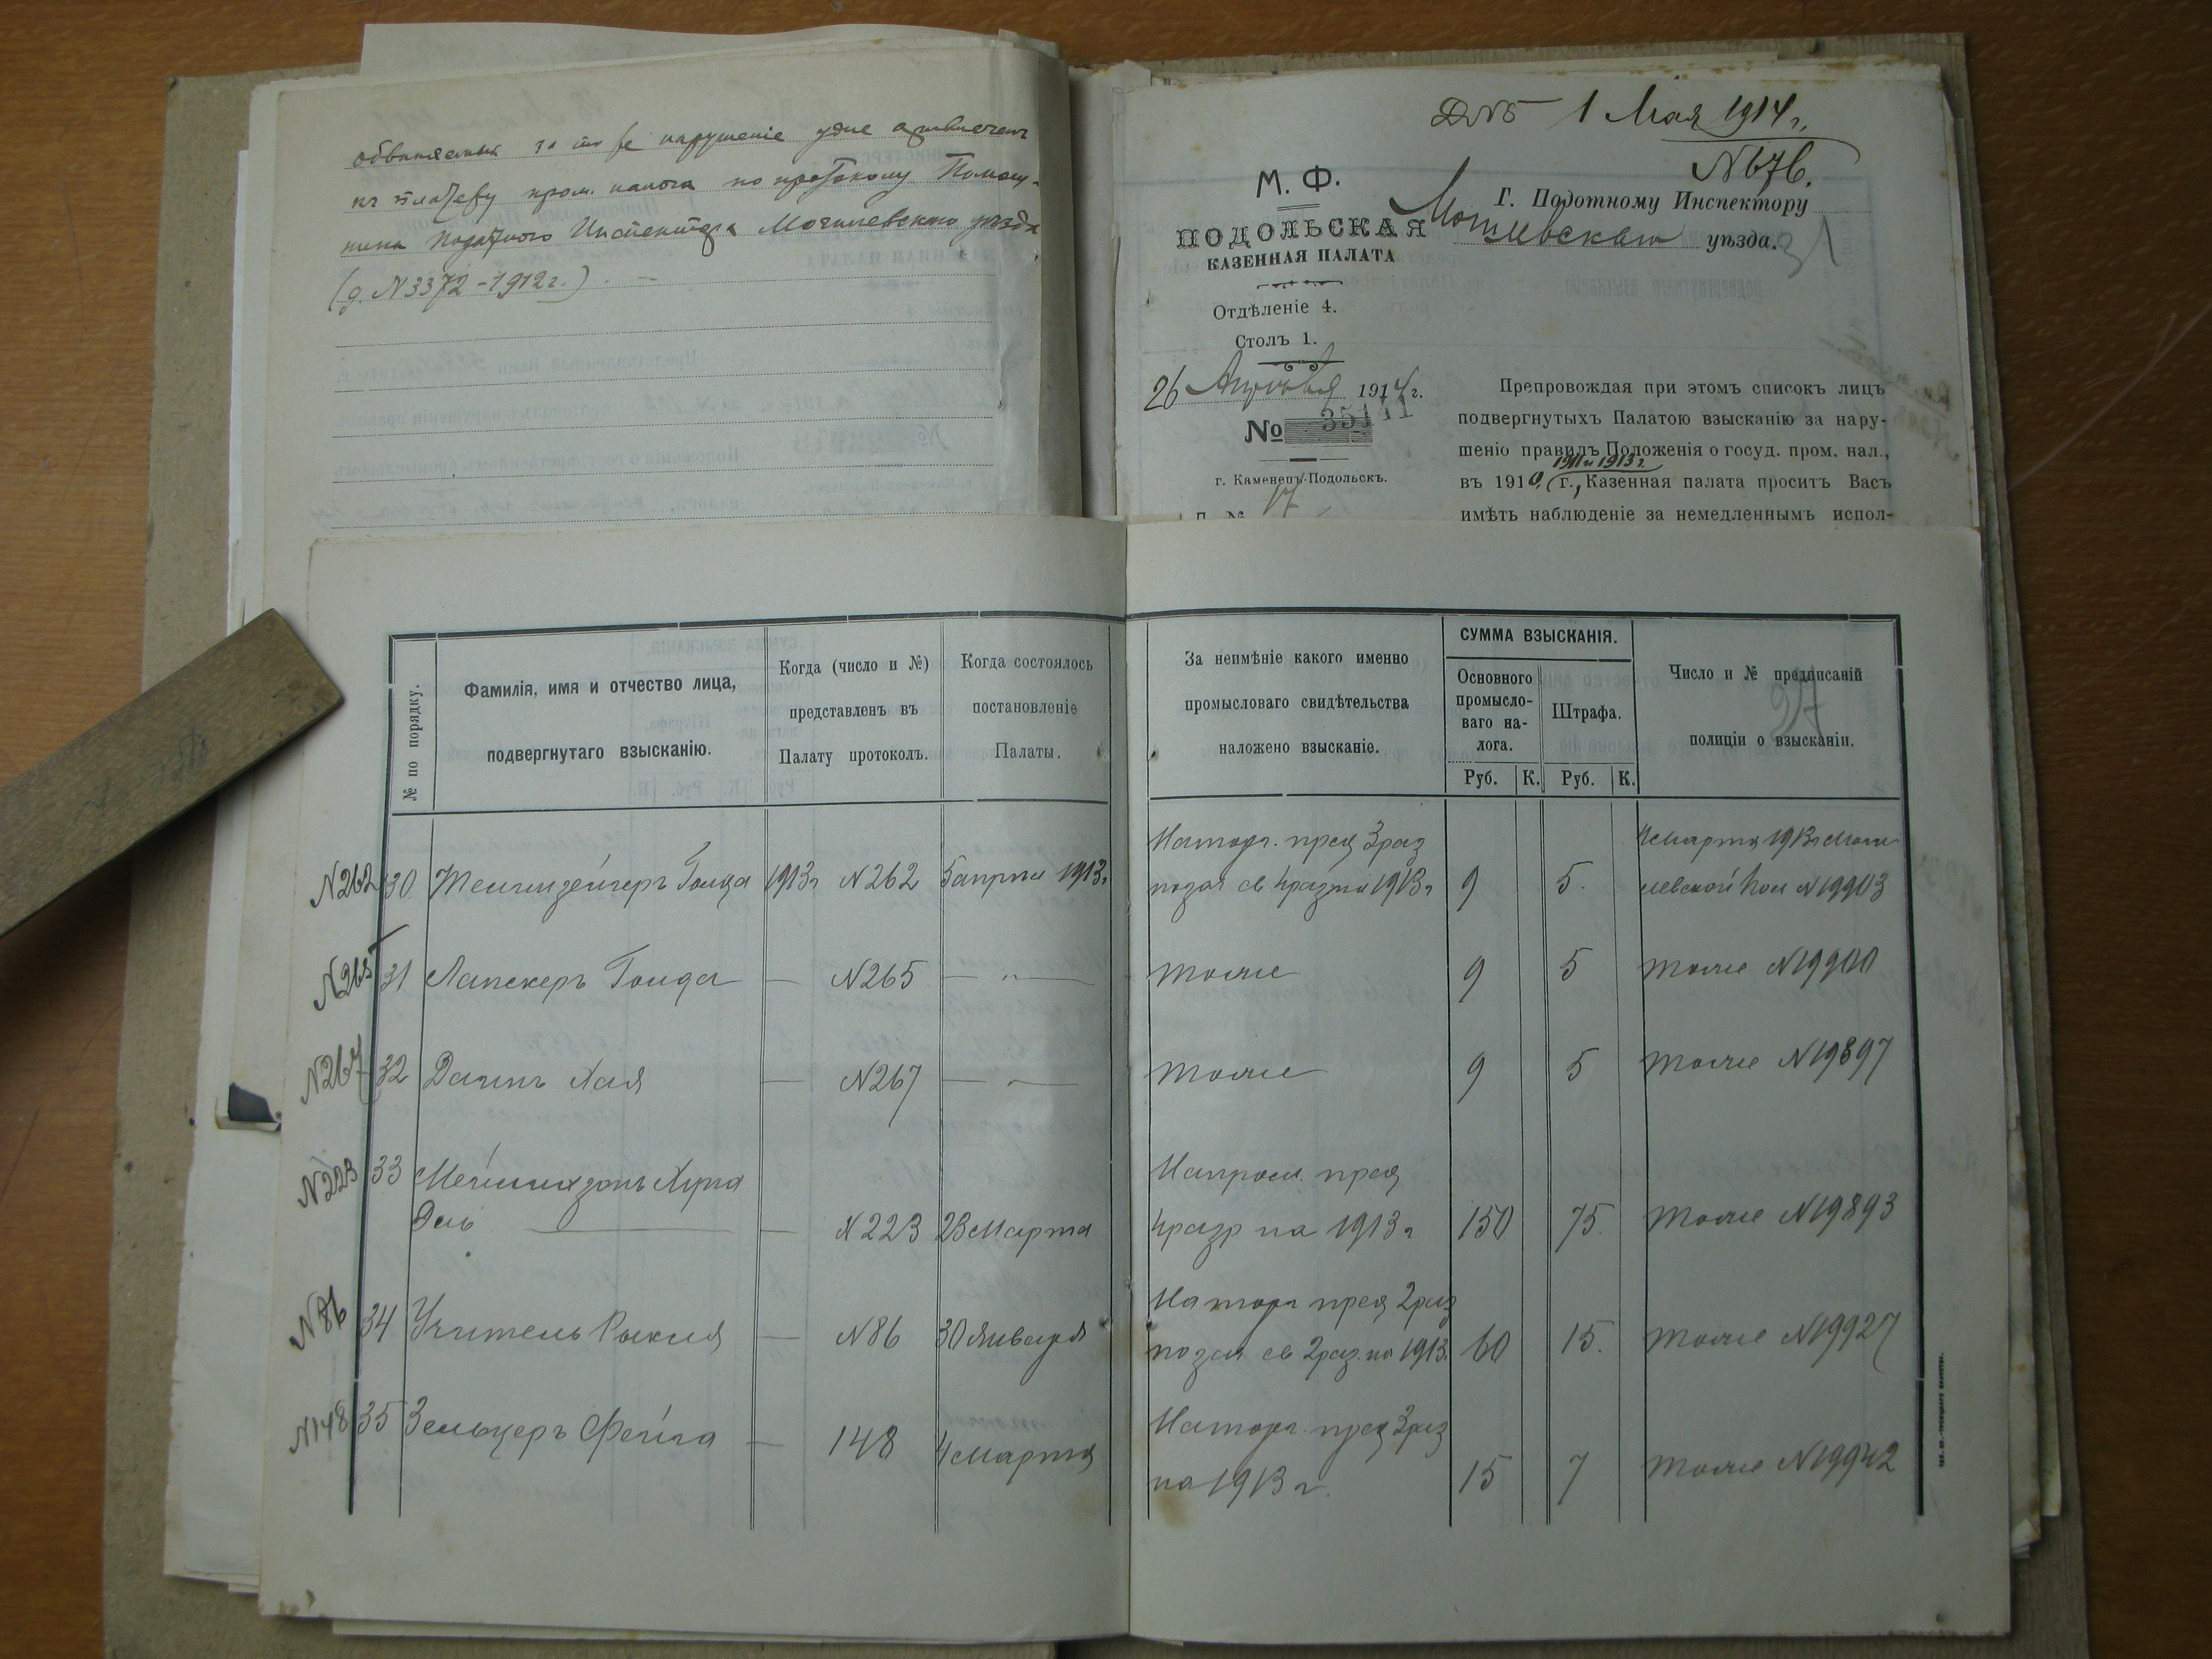 обвиняемый за то же нарушеніе уже привлеченъ
къ платежу пром. налога по протоколу Помощ-
ника Податного Инспектора Могилевскаго уѣзда
(д. N 3372 - 1912 г.). —
1 Мая 1914 г.
N 676.
М. Ф.
ПОДОЛЬСКАЯ
КАЗЕННАЯ ПАЛАТА
Отдѣленіе 4.
Столъ 1.
26 Апрѣля 1914 г.
№ 35141
г. Каменецъ-Подольскъ.
17
Г. Подотному Инспектору
Могилевскаго уѣзда.
31
Препровождая при этомъ списокъ лицъ
подвергнутыхъ Палатою взысканію за нару-
шеніо правилъ Положенія о госуд. пром. нал.,
1911 и 1913 г.
въ 1910, г., Казенная палата проситъ Васъ
имѣть наблюденіе за немедленнымъ испол-
№ по порядку.
Фамилія, имя и отчество лица,
подвергнутаго взысканію.
Когда (число и №)
представленъ въ
Палату протоколъ.
Когда состоялось
постановленіе
Палаты.
За неимѣніе какого именно
промысловаго свидѣтельства
наложено взысканіе.
СУММА ВЗЫСКАНІЯ.
Основного
промысло-
ваго на-
лога.
Штрафа.
Руб. К. Руб. К.
Число и № предписаній
полиціи о взысканіи.
27
На торг. пред 3 раз 4 марта 1913 г Моги
N262 30 Голда 1913 г N 262 5 апрѣл 1913 г. 1913 г 9 5. левской Пол N 19903
N265 31 Лапскеръ Голда — N 265 — " — тоже 9 5 тоже N 19900
N267 32 Хая — N 267 — " — тоже 9 5 тоже N 19897
N223 33 На пром. пред
— N 223 23 Марта 4 разр на 1913 г 150 75. тоже N 19893
На торг пред 2 раз
N86 34 Учитель — N 86 30 Января 2 раз. на 1913 60 15. тоже N 19927
N148 35 Зельцеръ Фейга — 148 4 марта На торг. пред 3 раз
на 1913 г. 15 7 тоже N 19942